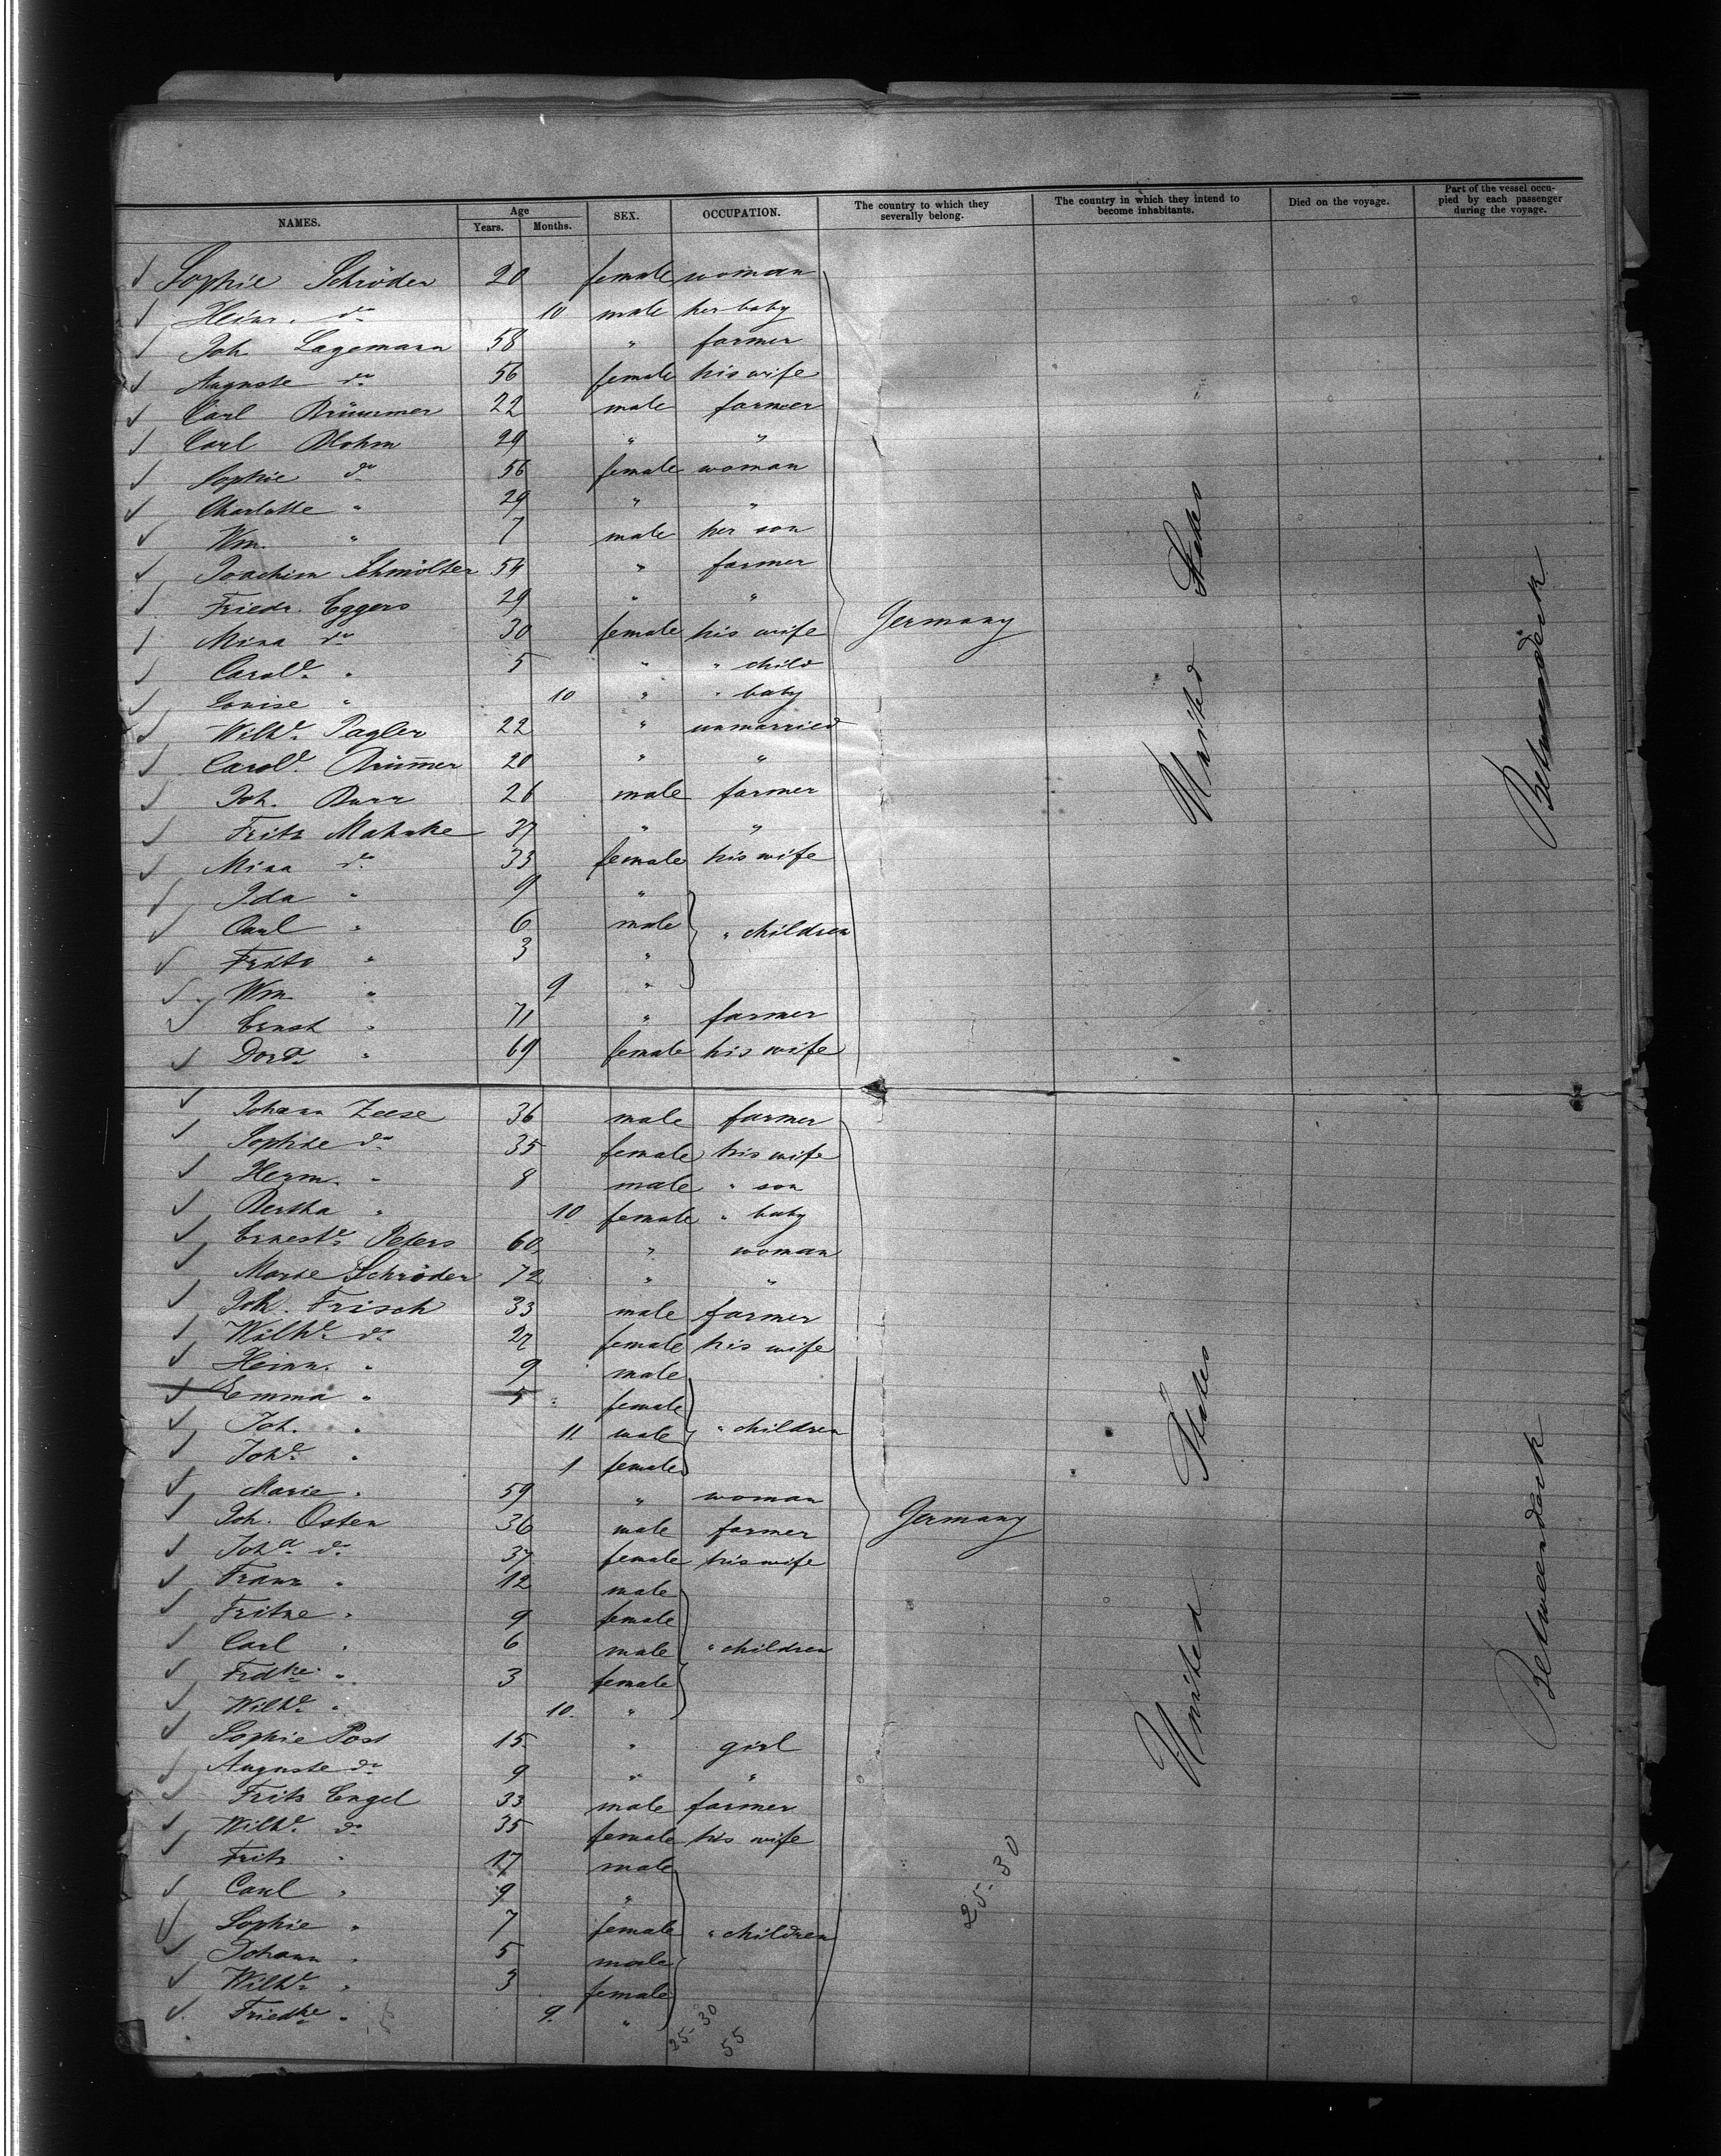 NAMES. Age Years. Months. SEX. OCCUPATION. The country to which they severally belong. The country in which they intend to become inhabitants. Died on the voyage. Part of the vessel occupied by each passenger during the voyage.
Sophie Schröder 20 female woman
Heinr. do 10 male her baby
Joh Lagemann 58 " farmer
Auguste do 56 female his wife
Carl Brümmer 22 male farmer
Carl Blohm 29 " "
Sophie do 56 female woman
Charlotte " 29 " "
Wm. " 7 male her son
Joachim Schmölter 54 " farmer
Friedr. Eggers 29 " "
Mina do 30 female his wife
Germany
Carole. " 5 " " child
Louise " 10 " " baby
Wilhe. Pagler 22 " unmarried
Carole. Brüm̄er 20 " "
United States
Betweendeck
Joh. Burr 26 male farmer
Fritz Mahnke 37 " "
Mina do 33 female his wife
Ida " 9 "
Carl " 6 male " children
Fritz " 3 "
Wm " 9 "
Ernst " 71 " farmer
Dord. " 69 female his wife
Johann Zeese 36 male farmer
Sophie do 35 female his wife
Herm. " 8 male " son
Bertha " 10 female " baby
Erneste. Peters 60 " woman
Marie Schröder 72 " "
Joh. Frisch 33 male farmer
Wilhe. do 27 female his wife
Heinr. " 9 male
Emma " 5 female
Joh. " 11 male " children
Johe. " 1 female
Marie " 59 " woman
Joh. Osten 36 male farmer
Germany
Joha. do 37 female his wife
Franz " 12 male
Fritze " 9 female
Carl " 6 male " children
Frdke. " 3 female
Wilhe. " 10 "
United States
Betweendeck
Sophie Post 15 " girl
Auguste do 9 " "
Fritz Engel 33 male farmer
Wilhe. do 35 female his wife
Fritz " 17 male
Carl " 9 "
25-30
Sophie " 7 female " children
Johann " 5 male
Wilhe. " 3 female
Friedke " 9 "
25-30
55